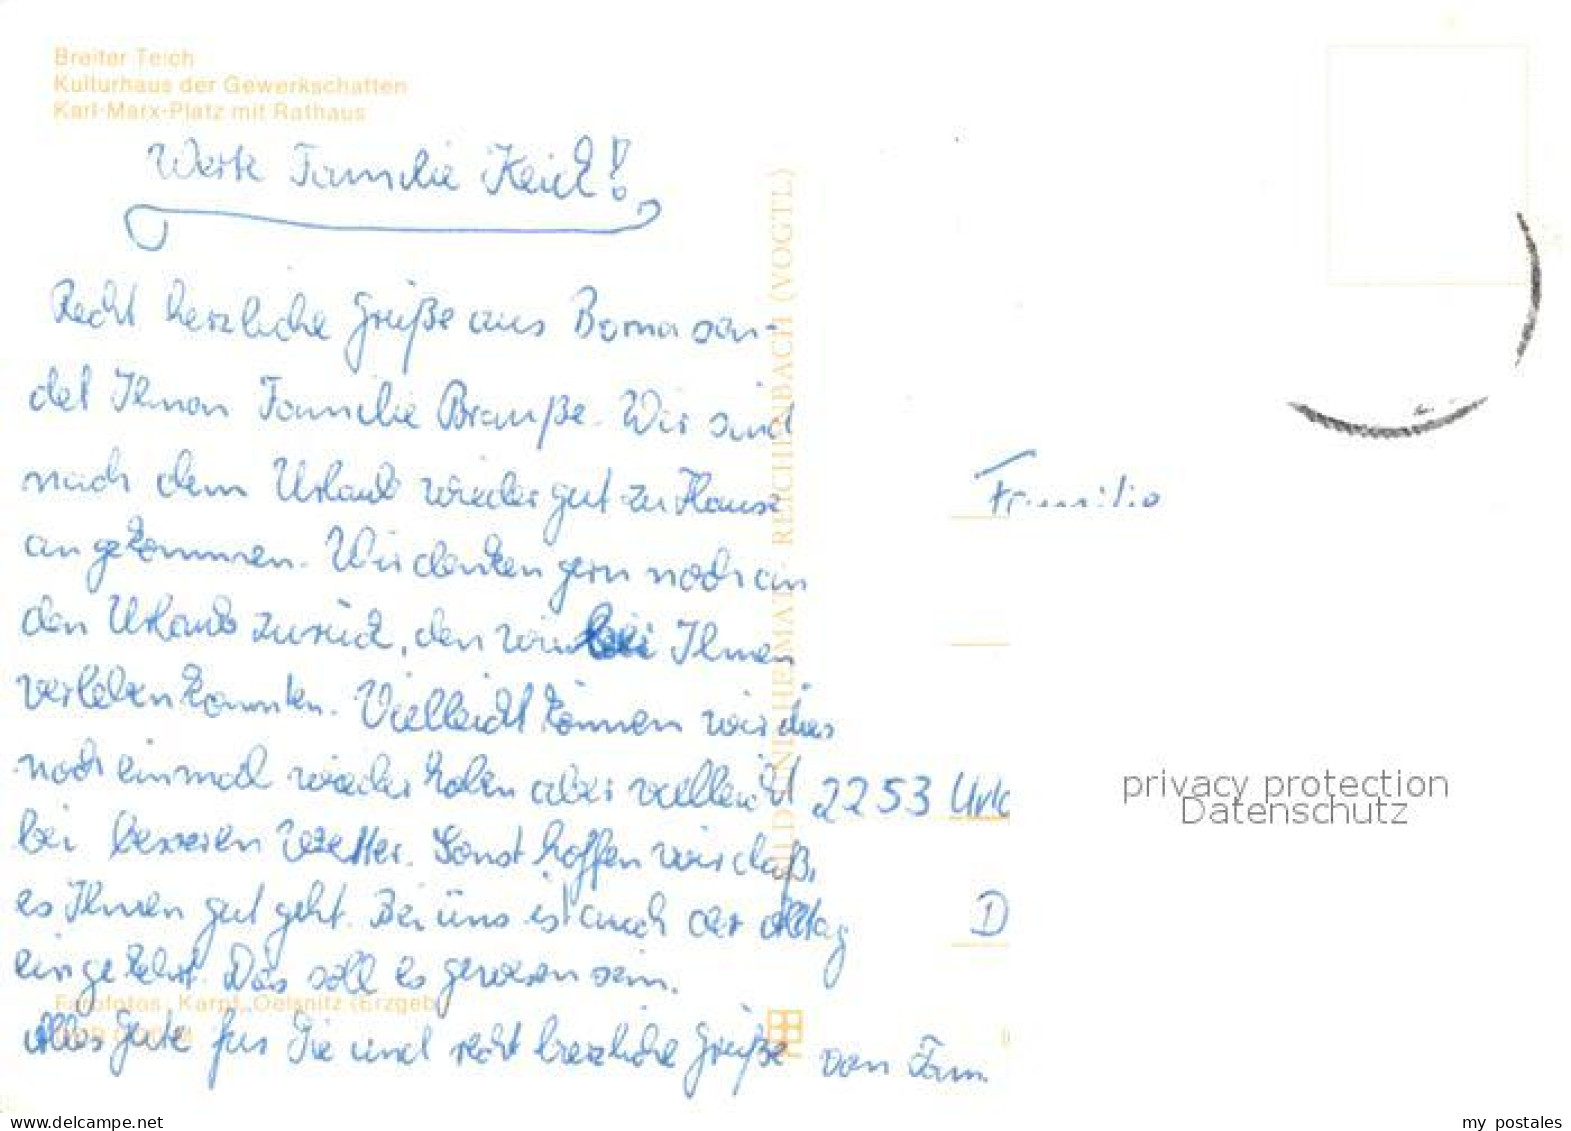 Breiter Teich
Kulturhaus der Gewerkschaften
Karl-Marx-Platz mit Rathaus
Werte Familie Keick!
Recht herzliche Grüße aus Borna sen-
det Ihnen Familie Brauße. Wir sind
nach dem Urlaub wieder gut zu Hause
angekommen. Wir denken gern noch an
den Urlaub zurück, den wir bei Ihnen
verleben konnten. Vielleicht können wir dies
noch einmal wiederholen aber vielleicht
bei besseren Wetter. Sonst hoffen wir daß,
es Ihnen gut geht. Bei uns ist auch der Alltag
eingekehrt. Das soll es gewesen sein.
Alles Gute für Sie und recht herzliche Grüße von Fam.
Farbfotos: Karpf, Oelsnitz (Erzgeb.)
BILD UND HEIMAT REICHENBACH (VOGTL)
Familie
2253
D
privacy protection
Datenschutz
www.delcampe.net
my_postales